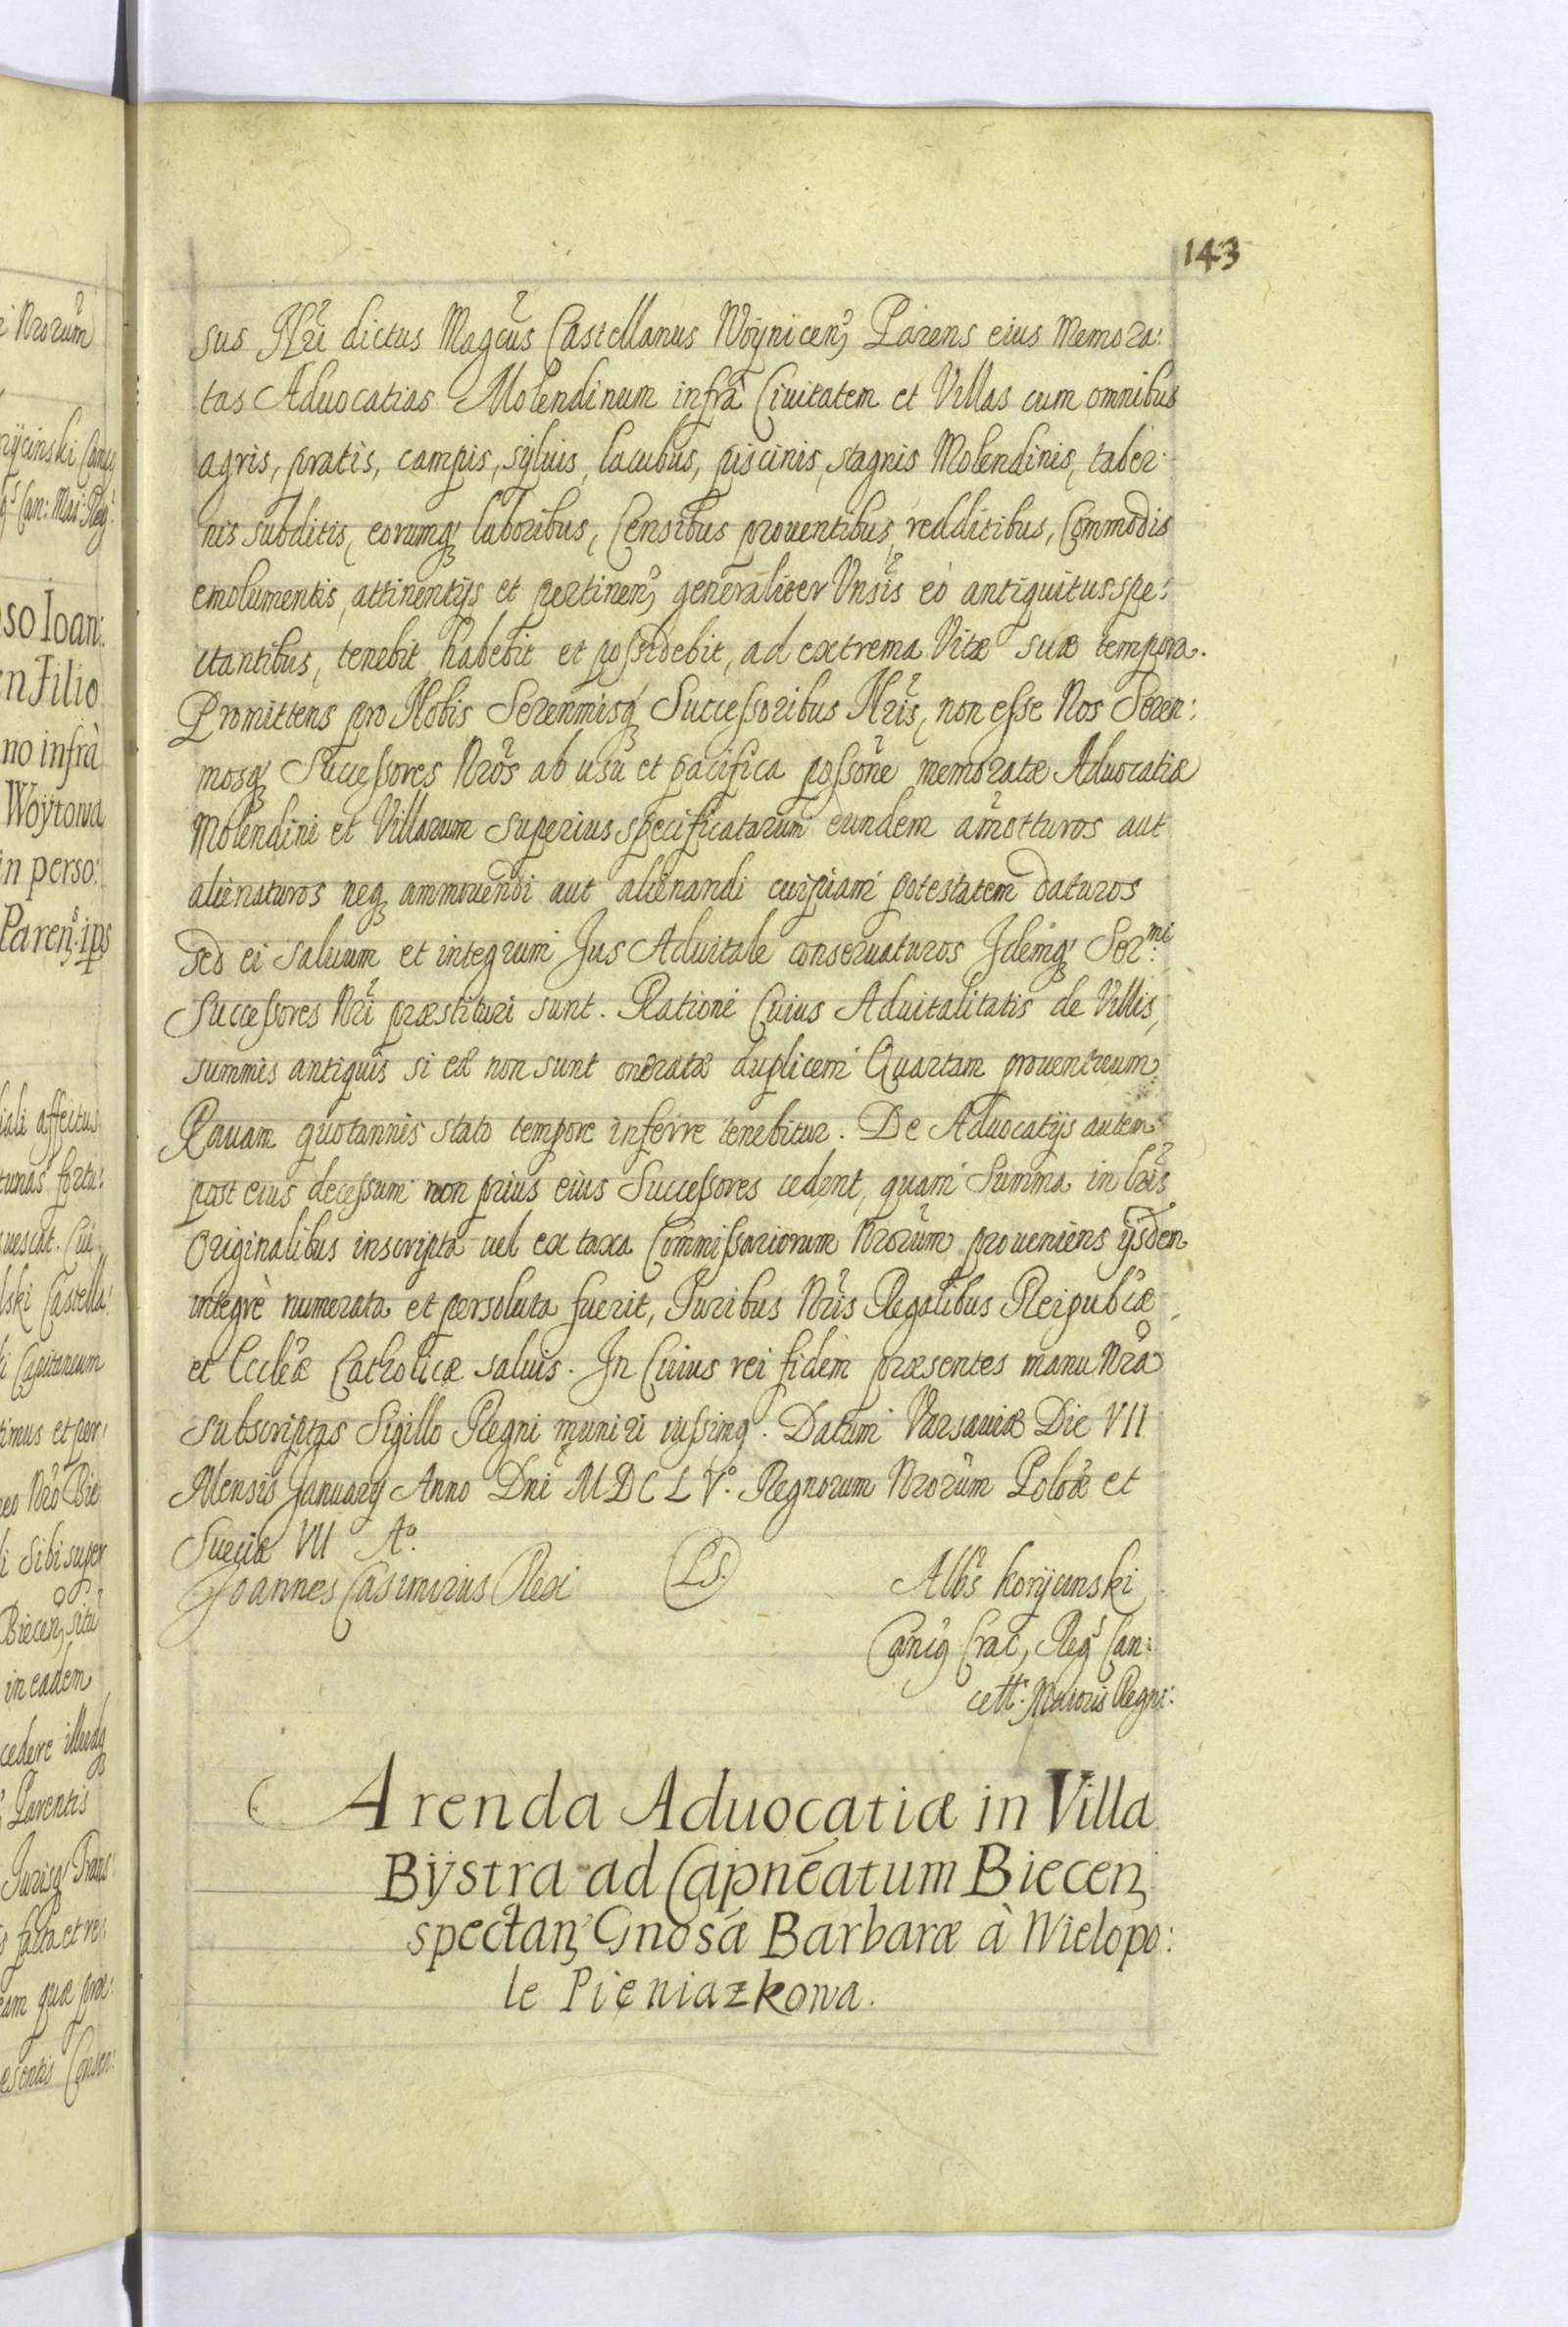 143
sus Nri dictus Magcus Castellanus Woynicen Parens eius Memora:
tas Aduocatias Molendinum infra Ciuitatem et Villas cum omnibus
agris, pratis, campis, syluis, lacubus, piscinis, stagnis Molendinis, taber
nis subditis, eorumq laboribus, Censibus prouentibus, redditibus, Commodis
emolumentis, attinentijs et pertinen generaliter Vnsis eo antiquitus spe:
ctantibus, tenebit habebit et possidebit, ad extrema Vitæ suæ tempora.
Promittens pro Nobis Serenmisq Successoribus Nris, non esse Nos Seren:
mosq Successores Nros ab usu et pacifica possone memoratæ Aduocatiæ
Molendini et Villarum superius specificatarum eundem amotturos aut
alienaturos neq ammouendi aut alienandi cuipiam potestatem daturos
sed ei saluum et integrum Jus Aduitale conseruaturos Idemq Ser.mi
Successores Nri præstituri sunt. Rationé Cuius Aduitalitatis de Villis,
summis antiquis si eæ non sunt oneratæ duplicem Quartam prouentuum
Rauam quotannis stato tempore inferre tenebitur. De Aduocatijs autem
post eius decessum non prius eius Successores cedent, quam Summa in Lris
Originalibus inscripta uel ex taxa Commissariorum Nrorum proueniens ijsdem
integrè numerata et persoluta fuerit, Juribus Nris Regalibus Reipubcæ
et Eccleæ Catholicæ saluis. In Cuius rei fidem præsentes manu Nra
subscriptas Sigillo Regni muniri iussimq. Datum Varsauiæ Die VII
Mensis January Anno Dni MDCLVo. Regnorum Nrorum Poloæ et
Sueciæ VII Ao.
Joannes Casimirus Rex
LS.
Albs Koryciinski
Canig Crac, Regs Can:
cell. Maioris Regni:
Arenda Aduocatiæ in Villa
Bÿstra ad Capneatum Biecen
spectan Gnosæ Barbaræ à Wielopo:
le Pieniazkowa.